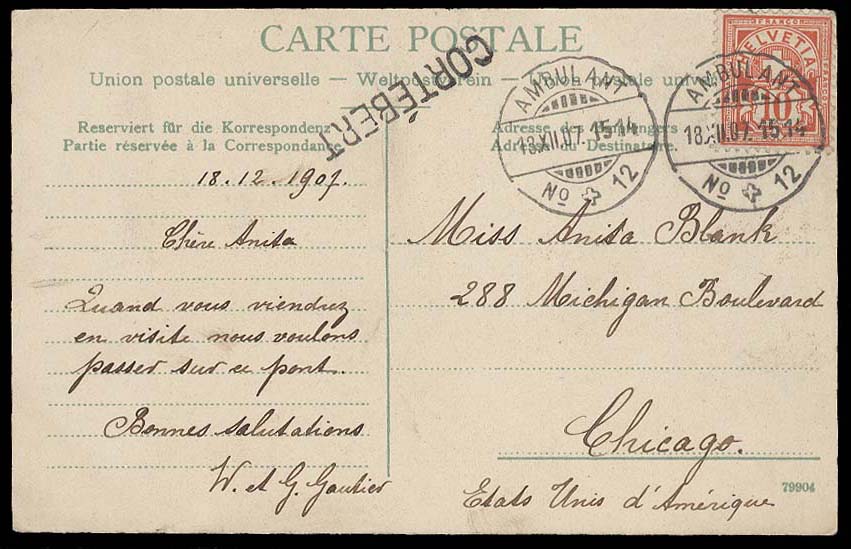 CARTE POSTALE
Union postale universelle — Weltpostverein — Union postale
CORTÉBERT
FRANCO
HELVETIA
10
AMBULANT
18.XII.07. 15.14
No 12
AMBULANT
18.XII.07. 15.14
No 12
Reserviert für die Korrespondenz
Partie réservée à la Correspondance
18.12.1907.
Chère Anita
Quand vous viendrez
en visite nous voulons
passer sur ce pont.
Bonnes salutations
W. et G. Gautier
Adresse des
Adresse du Destinataire.
Miss Anita Blank
288 Michigan Boulevard
Chicago.
Etats Unis d'Amérique
79904